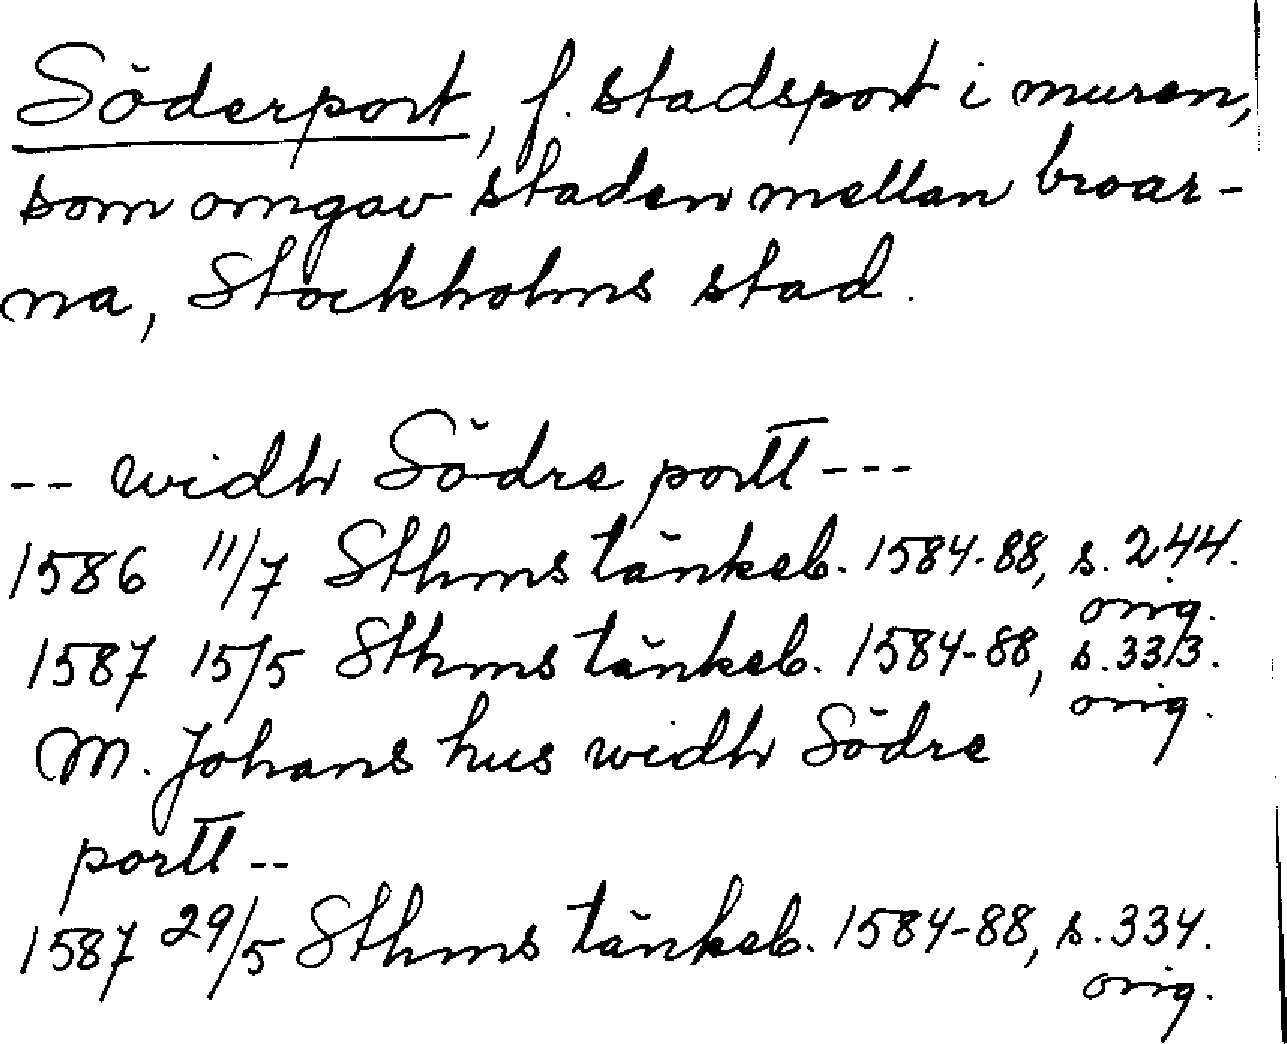 Söderport, f. stadsport i muren,
som omgav staden mellan broar-
na, Stockholms stad.
-- widh Södre portt ---
1586 11/7 Sthms tänkeb. 1584-88, s. 244.
orig.
1587 15/5 Sthms tänkeb. 1584-88, s. 333.
orig.
M. Johans hus widh Södre
portt --
1587 29/5 Sthms tänkeb. 1584-88, s. 334.
orig.